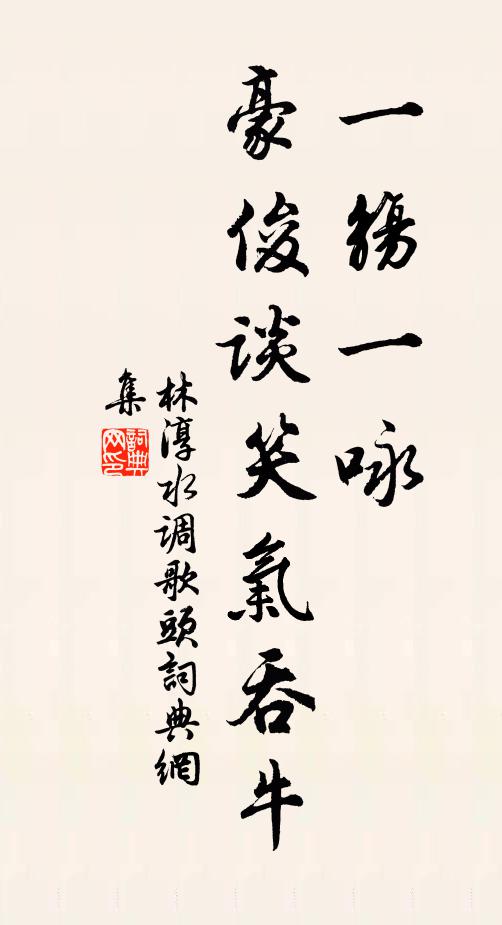 一觴一咏
豪俊談笑氣吞牛
林淳水调歌頭詞典網
集
詞典
网印